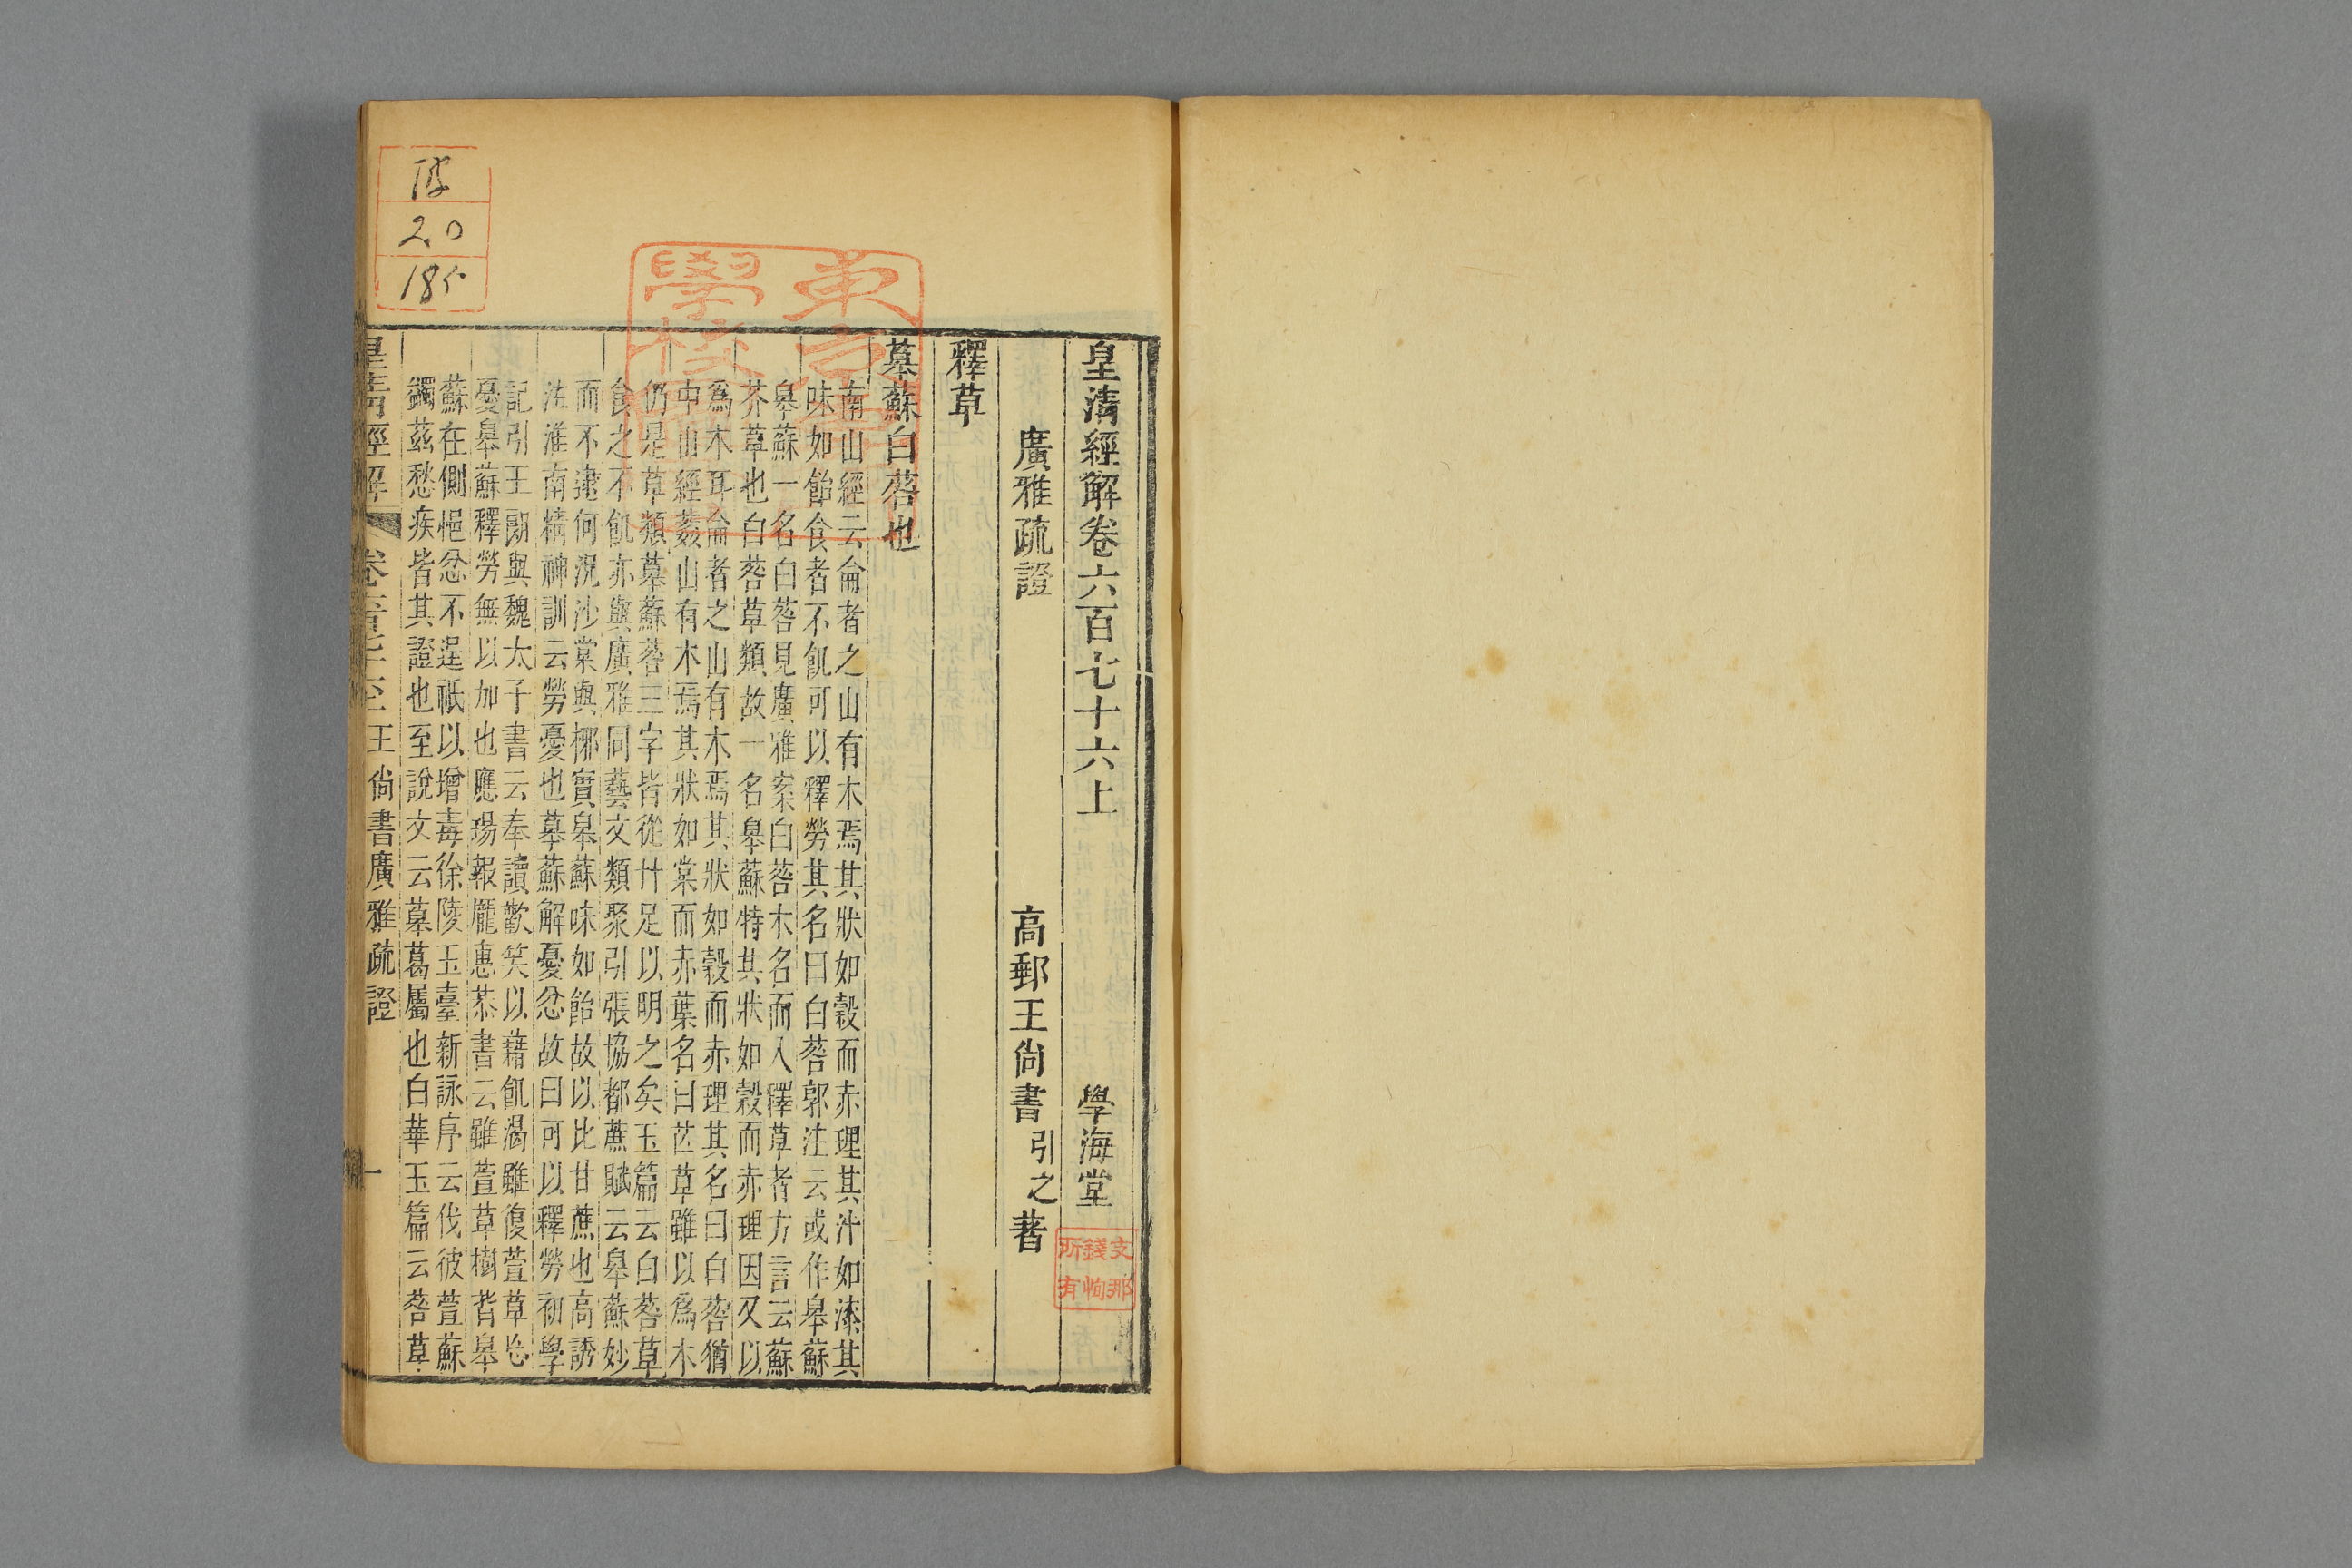 皇清經解卷六百七十六上
學海堂
廣雅疏證
高郵王尙書引之著
釋草
蓦蘇白䓘也
南山經云侖者之山有木焉其狀如榖而赤理其汁如漆其
味如飴食者不飢可以釋勞其名曰白䓘郭注云或作皋蘇
皋蘇一名白䓘見廣雅案白䓘木名而入釋草者方言云蘇
芥草也白䓘草類故一名皋蘇特其狀如榖而赤理因又以
爲木耳侖者之山有木焉其狀如榖而赤理其名曰白䓘猶
中山經葌山有木焉其狀如棠而赤葉名曰芒草雖以爲木
仍是草類蓦蘇䓘三字皆從艸足以明之矣玉篇云白䓘草
食之不飢亦與廣雅同藝文類聚引張協都蔗賦云皋蘇妙
而不逮何況沙棠與椰實皋蘇味如飴故以比甘蔗也高誘
注淮南精神訓云勞憂也蓦蘇解憂忿故曰可以釋勞初學
記引王朗與魏太子書云奉讀歡笑以藉飢渴雖復萱草忘
憂皋蘇釋勞無以加也應瑒報龐惠恭書云雖萱草樹背皋
蘇在側悒忿不逞祇以增毒徐陵玉臺新詠序云伐彼萱蘇
蠲茲愁疾皆其證也至說文云蓦葛屬也白華玉篇云䓘草
皇淸經解
王尙書廣雅疏證
一
20
185
支那
錢恂
所有